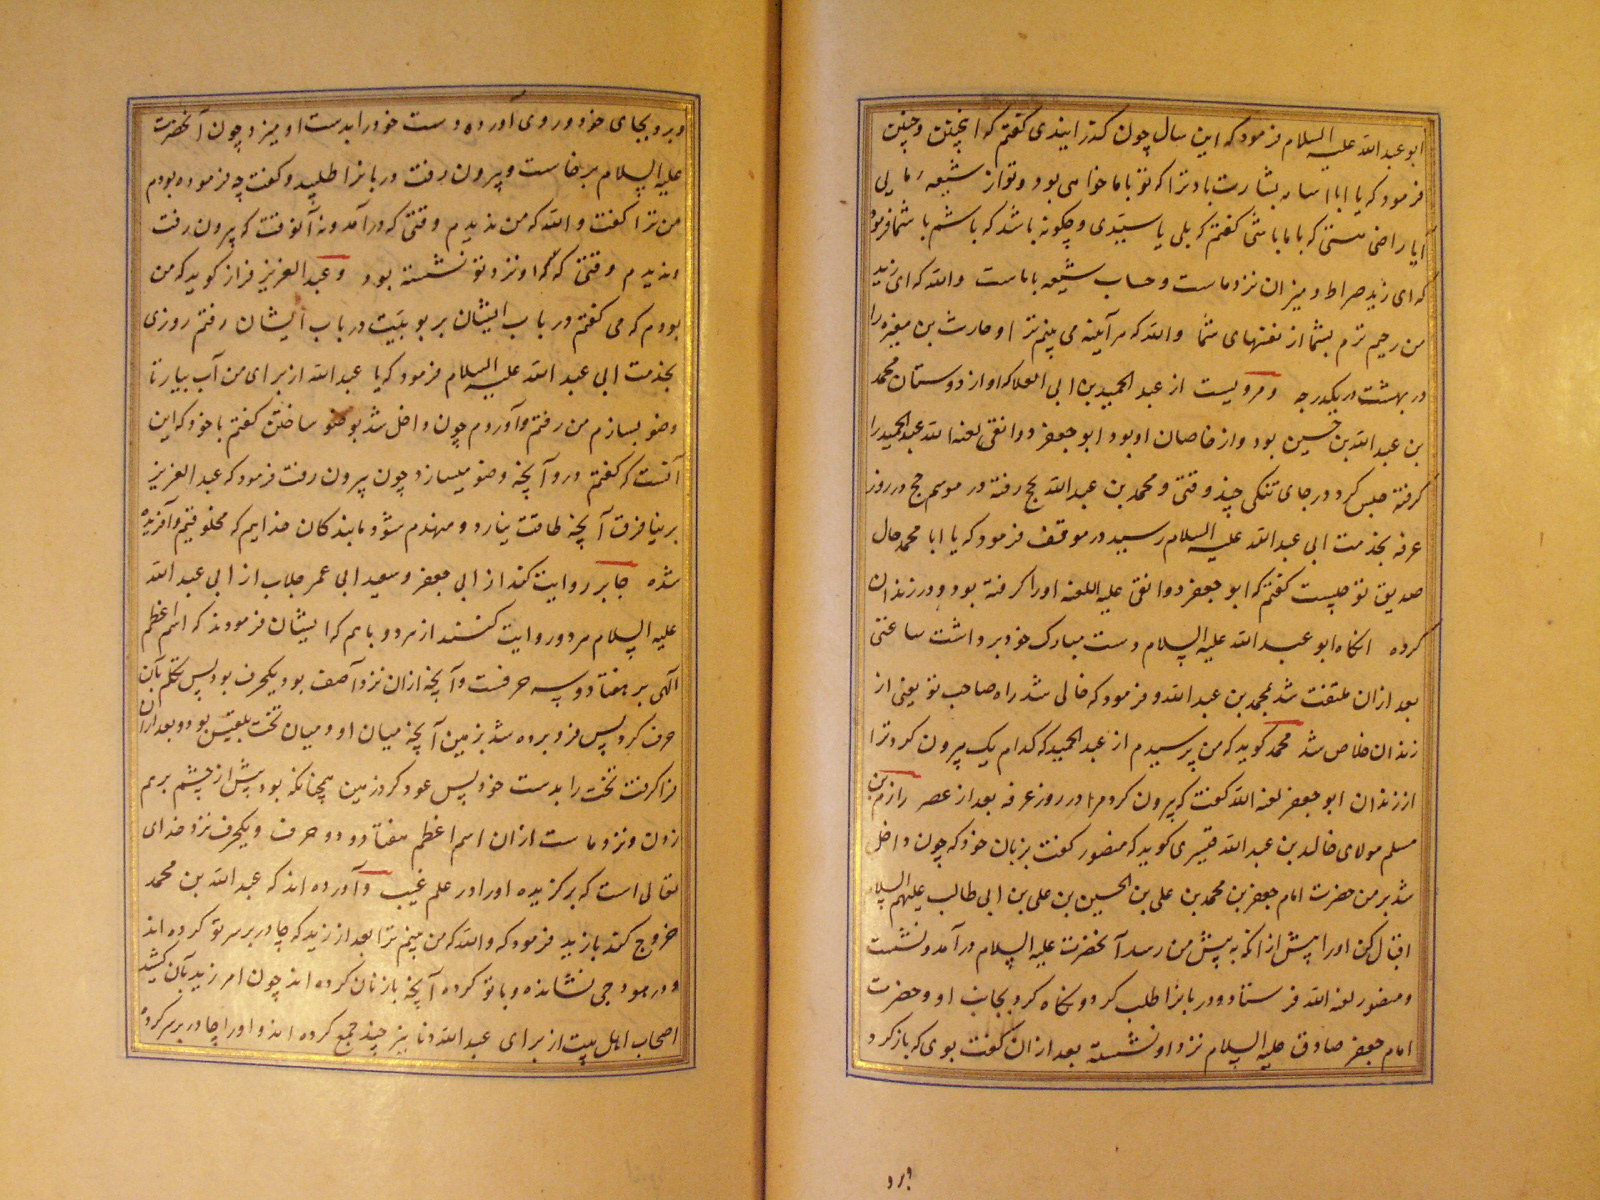 ابو عبد الله علیه السلام فرمود که این سال چون گذرانیدی گفتم که اینچنین و چنین
فرمود که یا ابا اسامه بشارت باد ترا که تو با ما خواهی بود و تو از شیعه مایی
آیا راضی نیستی که با ما باشی گفتم که بلی یا سیدی و چگونه باشد که باشم با شما فرمود
که ای زید صراط و میزان نزد ماست و حساب شیعه با ماست والله که ای زید
من رحیم ترم بشما از نفسهای شما والله که هرآینه می بینم ترا و حارث بن مغیره را
در بهشت در یکدرجه و مرویست از عبد الحمید بن ابی العلا که او از دوستان محمد
بن عبد الله بن حسین بود و از خاصان او بود ابو جعفر دوانقی لعنه الله عبد الحمید را
گرفته حبس کرد در جای تنگی چند وقتی و محمد بن عبد الله بحج رفته در موسم حج در روز
عرفه بخدمت ابی عبد الله علیه السلام رسید در موقف فرمود که یا ابا محمد حال
صدیق تو چیست گفتم که ابو جعفر دوانقی علیه اللعنه او را گرفته بود و در زندان
کرده انگاه ابو عبد الله علیه السلام دست مبارک خود برداشت ساعتی
بعد از ان ملتفت شد بمحمد بن عبد الله و فرمود که خالی شد راه صاحب تو یعنی از
زندان خلاص شد محمد گوید که من پرسیدم از عبد الحمید که کدام یک بیرون کرد ترا
از زندان ابو جعفر لعنه الله گفت که بیرون کرد مرا در روز عرفه بعد از عصر رازم بن
مسلم مولای خالد بن عبد الله قیسری گوید که منصور گفت بزبان خود که چون داخل
شد بر من حضرت امام جعفر بن محمد بن علی بن الحسین بن علی بن ابی طالب علیهم السلام
اقتال کن او را پیش از انکه به پیش من رسد آنحضرت علیه السلام درآمد و نشست
و منصور لعنه الله فرستاد و دربانرا طلب کرد و نگاه کرد بجانب او و حضرت
امام جعفر صادق علیه السلام نزد او نشسته بعد از ان گفت بوی که بازکرد
و برو بجای خود و روی آورده دست خود را بدست او میزد چون آنحضرت
علیه السلام برخاست و بیرون رفت دربانرا طلبید و گفت چه فرموده بودم
من ترا گفت والله که من ندیدم وقتی که درآمد و نه آنوقت که بیرون رفت
و ندیدم وقتی که او نزد تو نشسته بود و عبد العزیز قزاز گوید که من
بودم که می گفتم در باب ایشان بربوبیت در باب ایشان رفتم روزی
بخدمت ابی عبد الله علیه السلام فرمود که یا عبد الله از برای من آب بیار تا
وضو بسازم من رفتم و آوردم چون داخل شد بوضو ساختن گفتم با خود که این
آنست که گفتم در و آنچه وضو میسازد چون بیرون رفت فرمود که عبد العزیز
بر بنا فوق آنچه طاقت نیارد و منهدم شود ما بندگان خداییم که مخلوقیم و آفریده
شده جابر روایت کند از ابی جعفر و سعید ابی عمر جلاب از ابی عبد الله
علیه السلام هر دو روایت کنند از هر دو باهم که ایشان فرمودند که اسم اعظم
الهی بر هفتاد و سه حرفست و آنچه از ان نزد آصف بود یکحرف بود پس تکلم بآن
حرف کرد پس فرو برده شد بزمین آنچه میان او و میان تخت بلقیس بود و بعد از ان
فرا گرفت تخت را بدست خود پس عود کرد زمین همچنانکه بود پیش از چشم برهم
زدن و نزد ماست از ان اسم اعظم هفتاد و دو حرف و یکحرف نزد خدای
تعالی است که برگزیده او را در علم غیب و آورده اند که عبد الله بن محمد
خروج کند بازید فرمود که والله که من بینم ترا بعد از زید که چادر بر سر تو کرده اند
و در هودجی نشانده و با تو کرده آنچه بازنان کرده اند چون امر زید بآن کشید
اصحاب اهل بیت از برای عبد الله دنانیر چند جمع کرده اند و او را چادر بر سر کرده
و برو